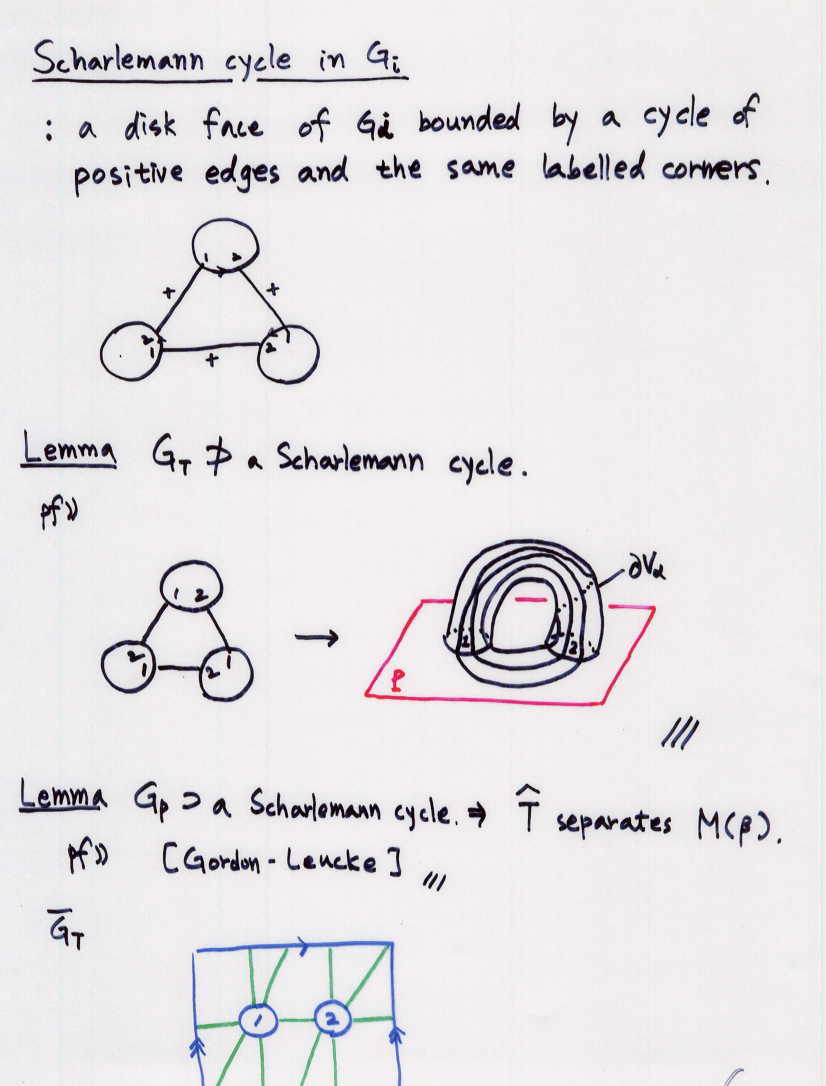 Scharlemann cycle in Gᵢ
: a disk face of Gᵢ bounded by a cycle of
positive edges and the same labelled corners.
1 2
+ +
2 1
1 + 2
Lemma G_T ⊅ a Scharlemann cycle.
pf»
1 2
∂V_α
2 1
1 2
1 2
P
///
Lemma G_P ⊃ a Scharlemann cycle. ⇒ T̂ separates M(β).
pf») [Gordon - Leucke] ///
G̅_T
1 2